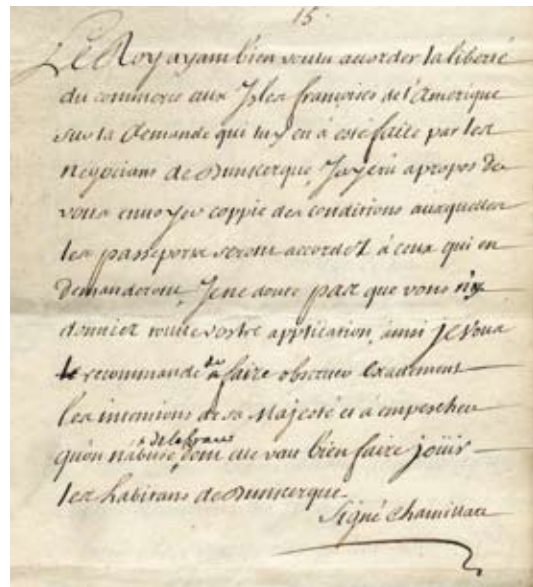 15.
Le Roy ayant bien voulu accorder la liberté
du commerce aux Isles françoises de l'Amerique
sur la demande qui luy en a esté faite par les
Negocians de Dunkerque, J'ay crû apropos de
vous envoyer coppie des conditions auxquelles
les passeports seront accordez à ceux qui en
demanderont, Je ne doute pas que vous n'y
donniez toute vostre application, ainsi je vous
recommande de faire observer exactement
les intentions de sa Majesté et à empescher
qu'on n'abuse de la grace dont elle veut bien faire joüir
les habitans de Dunkerque.
Signé Chamillart